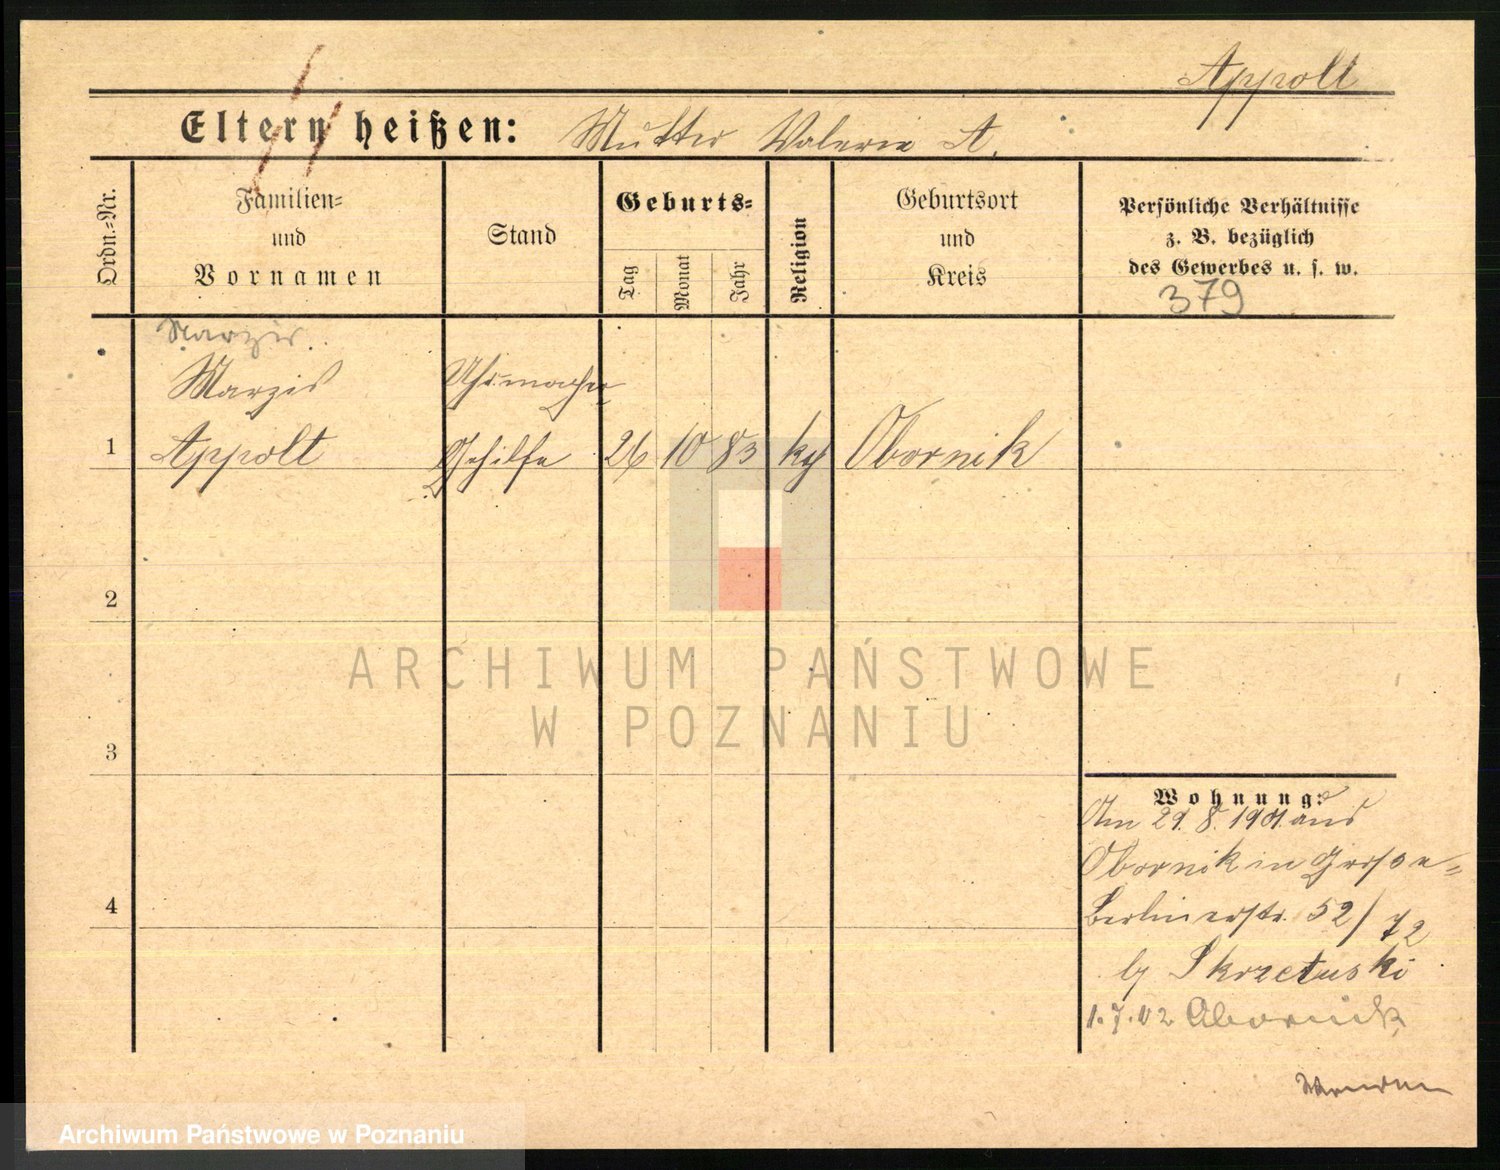 Appolt
Eltern heißen: Mutter Valerie A.
Ordn.-Nr.
Familien-
und
Vornamen
Stand
Geburts-
Tag
Monat
Jahr
Religion
Geburtsort
und
Kreis
Persönliche Verhältnisse
z. B. bezüglich
des Gewerbes u. s. w.
379
Uhrmacher
1 Appolt Gehilfe 26 10 83 Obornik
2
3
4
ARCHIWUM PAŃSTWOWE
W POZNANIU
Wohnung:
Am 29. 8. 1901 aus
Obornik in Große-
Berlinerstr. 52/72
Skrzetuski
1.7.02 Obornik
Archiwum Państwowe w Poznaniu